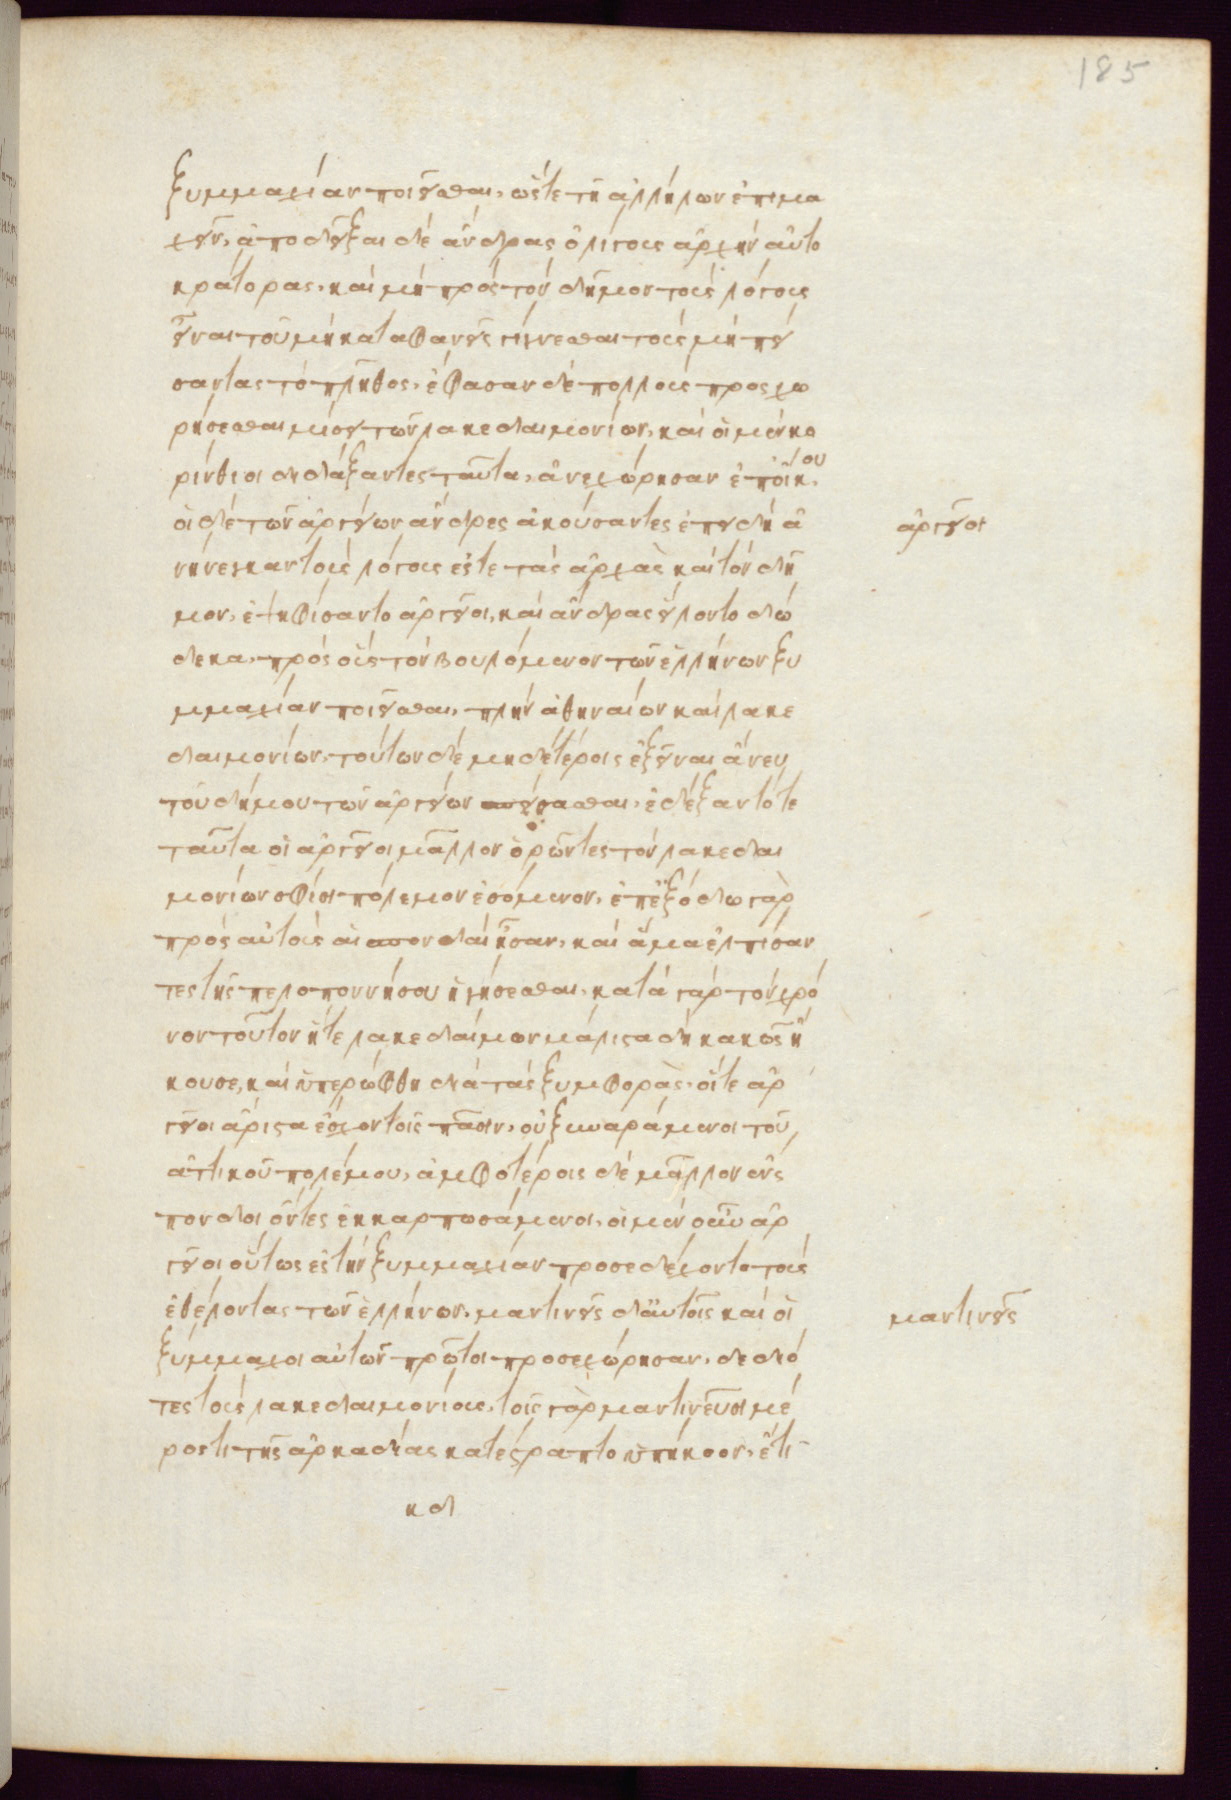 185
ξυμμαχίαν ποιεῖσθαι, ὥστε τῆ ἀλλήλων ἐπιμα
χεῖν, ἀποδεῖξαι δὲ ἄνδρας ὀλίγους ἀρχὴν αὐτο
κράτορας, καὶ μὴ πρὸς τὸν δῆμον τοὺς λόγους
εἶναι τοῦ μὴ καταφανεῖς γίγνεσθαι τοὺς μὴ πεί
σαντας τὸ πλῆθος, ἔφασαν δὲ πολλοὺς προσχω
ρήσεσθαι μίσει τῶν λακεδαιμονίων, καὶ οἱ μὲν κο
ρίνθιοι διδάξαντες ταῦτα, ἀνεχώρησαν ἐπ οἴκου.
οἱ δὲ τῶν ἀργείων ἄνδρες ἀκούσαντες ἐπειδὴ ἀ
νήνεγκαν τοὺς λόγους ἔς τε τὰς ἀρχὰς καὶ τὸν δῆ
μον, ἐψηφίσαντο ἀργεῖοι, καὶ ἄνδρας εἵλοντο δώ
δεκα, πρὸς οὓς τὸν βουλόμενον τῶν ἑλλήνων ξυ
μμαχίαν ποιεῖσθαι, πλὴν ἀθηναίων καὶ λακε
δαιμονίων, τούτων δὲ μηδετέροις ἐξεῖναι ἄνευ
τοῦ δήμου τῶν ἀργείων σπείσασθαι, ἐδέξαντό τε
ταῦτα οἱ ἀργεῖοι μᾶλλον ὁρῶντες τὸν λακεδαι
μονίων σφίσι πόλεμον ἐσόμενον, ἐπ ἐξόδω γὰρ
πρὸς αὐτοὺς αἱ σπονδαὶ ἦσαν, καὶ ἅμα ἐλπίσαν
τες τῆς πελοποννήσου ἡγήσεσθαι, κατὰ γὰρ τὸν χρό
νον τοῦτον ἥ τε λακεδαίμων μάλιστα δὴ κακῶς ἤ
κουσε, καὶ ὑπερώφθη διὰ τὰς ξυμφοράς, οἵ τε ἀρ
γεῖοι ἄριστα ἔσχον τοῖς πᾶσιν, οὐ ξυναράμενοι τοῦ
ἀττικοῦ πολέμου, ἀμφοτέροις δὲ μᾶλλον ἔνς
πονδοι ὄντες ἐκκαρπωσάμενοι, οἱ μὲν οὖν ἀρ
γεῖοι οὕτως ἐς τὴν ξυμμαχίαν προσεδέχοντο τοὺς
ἐθέλοντας τῶν ἑλλήνων, μαντινεῖς δ αὐτοῖς καὶ οἱ
ξύμμαχοι αὐτῶν πρῶτοι προσεχώρησαν, δεδιό
τες τοὺς λακεδαιμονίους, τοῖς γὰρ μαντινεῦσι μέ
ρος τι τῆς ἀρκαδίας κατέστραπτο ὑπήκοον, ἔτι
κδ
ἀργεῖοι
μαντινεῖς